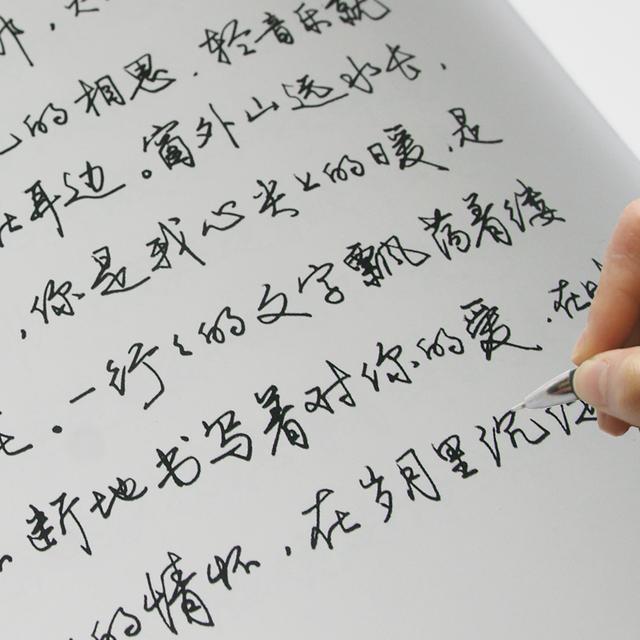 的相思，轻音乐就
在耳边。窗外山远水长，
，你是我心尖上的暖，是
。一行行的文字飘荡着缕
断地书写着对你的爱，在
的情怀，在岁月里沉